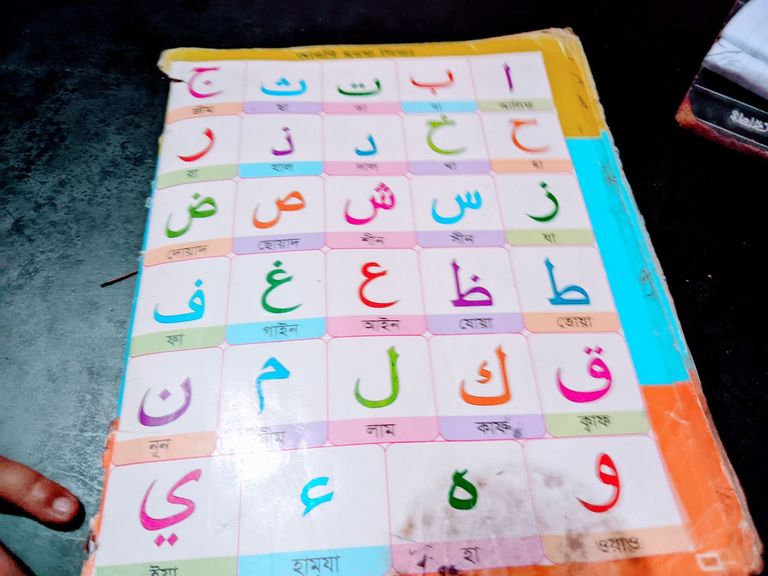 ا ب ت ث ج
আলিফ বা তা ছা জীম
ح خ د ذ ر
হা খা দাল যাল রা
ز س ش ص ض
যা সীন শীন ছোয়াদ দোয়াদ
ط ظ ع غ ف
তোয়া যোয়া আইন গাইন ফা
ق ك ل م ن
ক্বাফ কাফ লাম মীম নূন
و ه ء ي
ওয়াও হা হামযা ইয়া